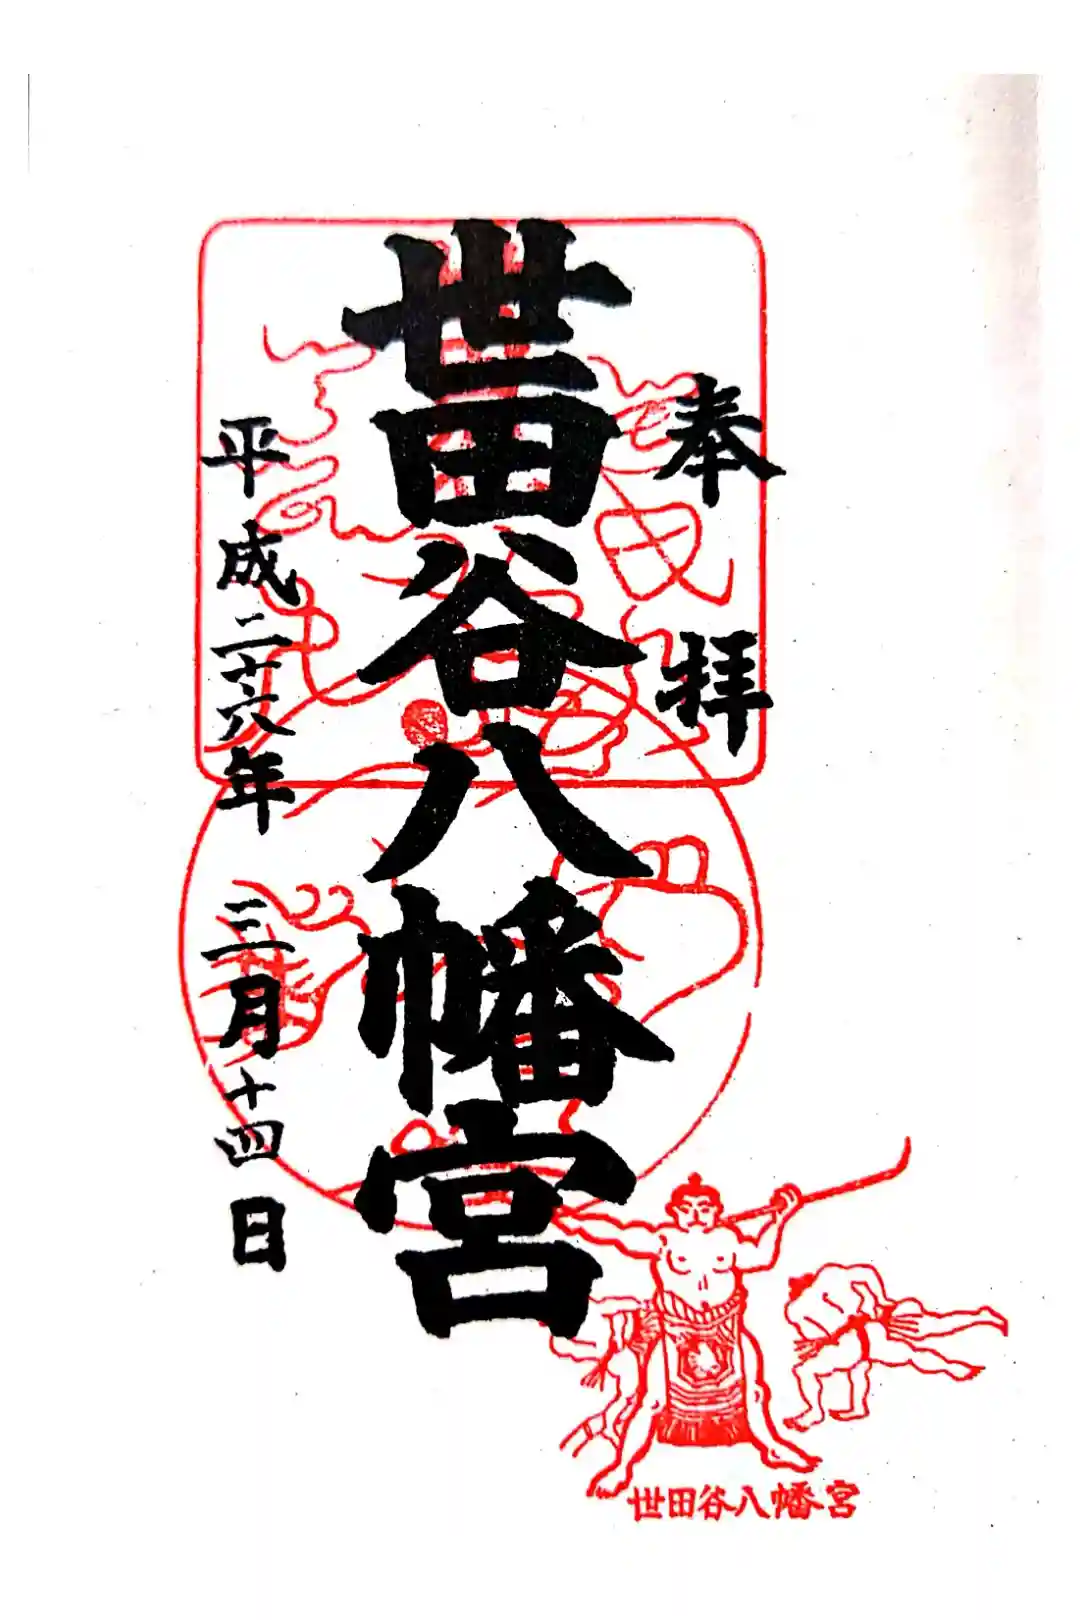 奉拝
世田谷八幡宮
平成二十六年三月十四日
世田谷八幡宮